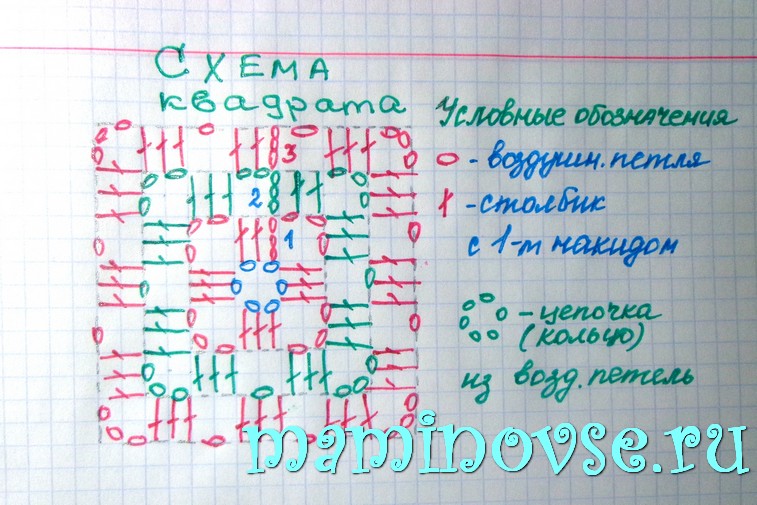 Схема
квадрата
Условные обозначения
- воздушн. петля
- столбик
с 1-м накидом
- цепочка
(кольцо)
из возд. петель
3
2
1
maminovse.ru